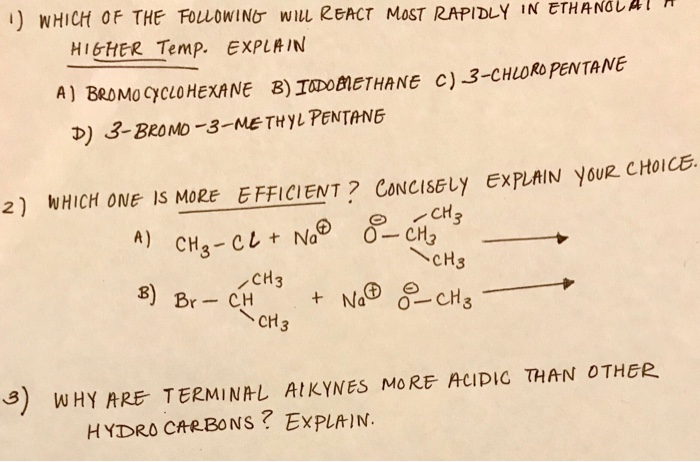 1) WHICH OF THE FOLLOWING WILL REACT MOST RAPIDLY IN ETHANOL AT A
HIGHER Temp. EXPLAIN
A) BROMOCYCLOHEXANE B) IODOMETHANE C) 3-CHLOROPENTANE
D) 3-BROMO-3-METHYLPENTANE
2) WHICH ONE IS MORE EFFICIENT? CONCISELY EXPLAIN YOUR CHOICE.
CH3
A) CH3-Cl + Na⊕ ⊖O-CH3
CH3
CH3
B) Br-CH + Na⊕ ⊖O-CH3
CH3
3) WHY ARE TERMINAL AlKYNES MORE ACIDIC THAN OTHER
HYDROCARBONS? EXPLAIN.